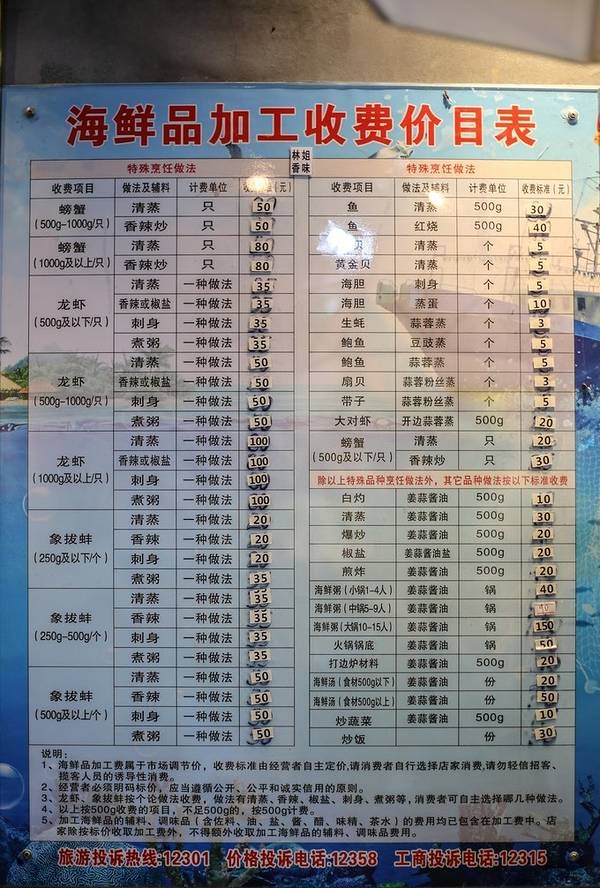 海鲜品加工收费价目表
林姐
香味
特殊烹饪做法
收费项目 做法及辅料 计费单位 收 (元)
螃蟹 (500g-1000g/只) 清蒸 只 50
香辣炒 只 50
螃蟹 (1000g及以上/只) 清蒸 只 80
香辣炒 只 80
龙虾 (500g及以下/只) 清蒸 一种做法 35
香辣或椒盐 一种做法 35
刺身 一种做法 35
煮粥 一种做法 35
龙虾 (500g-1000g/只) 清蒸 一种做法 50
香辣或椒盐 一种做法 50
刺身 一种做法 50
煮粥 一种做法 50
龙虾 (1000g及以上/只) 清蒸 一种做法 100
香辣或椒盐 一种做法 100
刺身 一种做法 100
煮粥 一种做法 100
象拔蚌 (250g及以下/个) 清蒸 一种做法 20
香辣 一种做法 20
刺身 一种做法 20
煮粥 一种做法 35
象拔蚌 (250g-500g/个) 清蒸 一种做法 35
香辣 一种做法 35
刺身 一种做法 35
煮粥 一种做法 35
象拔蚌 (500g及以上/个) 清蒸 一种做法 50
香辣 一种做法 50
刺身 一种做法 50
煮粥 一种做法 50
特殊烹饪做法
收费项目 做法及辅料 计费单位 收费标准(元)
鱼 清蒸 500g 30
鱼 红烧 500g 40
贝 清蒸 个 5
黄金贝 清蒸 个 5
海胆 刺身 个 5
海胆 蒸蛋 个 10
生蚝 蒜蓉蒸 个 3
鲍鱼 豆豉蒸 个 5
鲍鱼 蒜蓉蒸 个 5
扇贝 蒜蓉粉丝蒸 个 3
带子 蒜蓉粉丝蒸 个 5
大对虾 开边蒜蓉蒸 500g 20
螃蟹 (500g及以下/只) 清蒸 只 20
香辣炒 只 30
除以上特殊品种烹饪做法外，其它品种做法按以下标准收费
白灼 姜蒜酱油 500g 10
清蒸 姜蒜酱油 500g 30
爆炒 姜蒜酱油 500g 20
椒盐 姜蒜酱油盐 500g 20
煎炸 姜蒜酱油 500g 20
海鲜粥(小锅1-4人) 姜蒜酱油 锅 40
海鲜粥(中锅5-9人) 姜蒜酱油 锅
海鲜粥(大锅10-15人) 姜蒜酱油 锅 150
火锅锅底 姜蒜酱油 锅 50
打边炉材料 姜蒜酱油 500g 20
海鲜汤(食材500g以下) 姜蒜酱油 份 20
海鲜汤(食材500g以上) 姜蒜酱油 份 50
炒蔬菜 姜蒜酱油 500g 10
炒饭 份 30
说明：
1、海鲜品加工费属于市场调节价，收费标准由经营者自主定价,请消费者自行选择店家消费,请勿轻信招客、
揽客人员的诱导性消费。
2、经营者必须明码标价，应当遵循公开、公平和诚实信用的原则。
3、龙虾、象拔蚌按个论做法收费，做法有清蒸、香辣、椒盐、刺身、煮粥等，消费者可自主选择哪几种做法。
4、以上按500g收费的项目，不足500g的，按500g计费。
5、加工海鲜品的辅料、调味品（含佐料、油、盐、酱、醋、味精、茶水）的费用均已包含在加工费中。店
家除按标价收取加工费外，不得额外收取加工海鲜品的辅料、调味品费用。
旅游投诉热线:12301 价格投诉电话:12358 工商投诉电话:12315